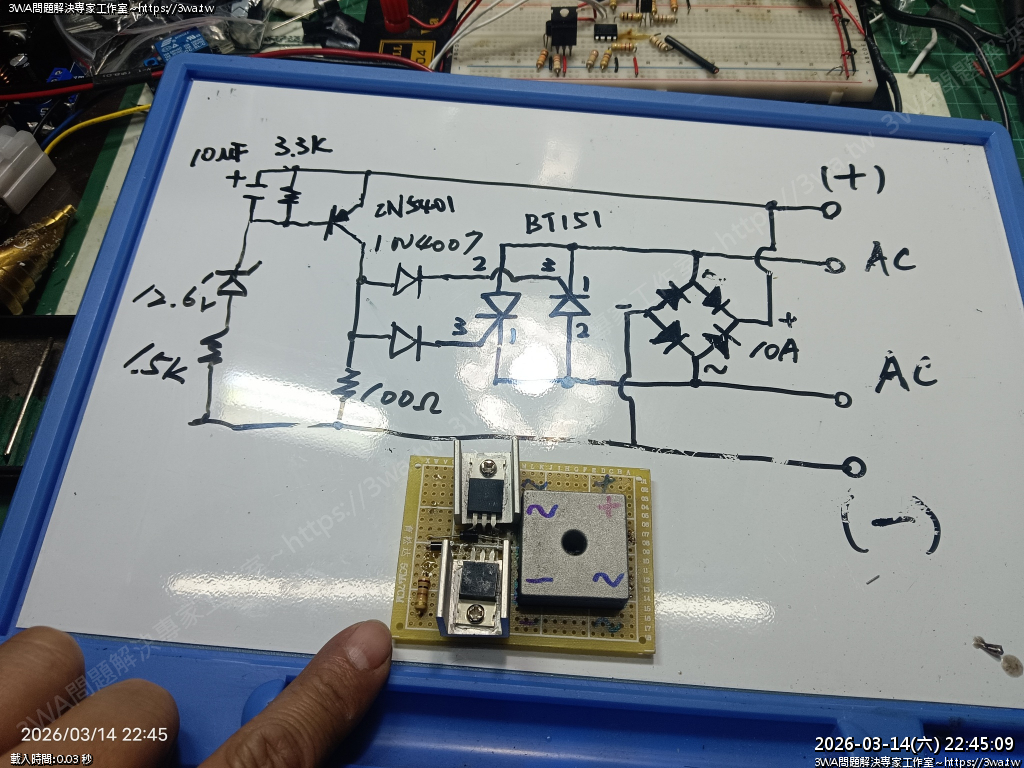 3WA問題解決專家工作室~https://3wa.tw
3WA問題解決專家工作室~https://3wa.tw
10μF
3.3K
(+)
+
2N5401
BT151
1N4007
AC
2
3
1
12.6V
3
1
2
-
~
+
10A
1.5K
~
AC
100Ω
(-)
~
+
~
+
-
~
2026/03/14 22:45
載入時間:0.03 秒
2026-03-14(六) 22:45:09
3WA問題解決專家工作室~https://3wa.tw